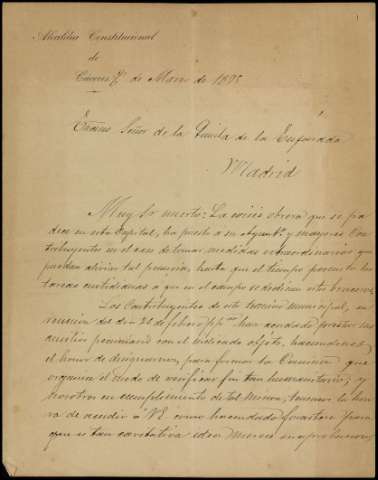 Alcaldía Constitucional
de
Cáceres 7 de Marzo de 1898
Exmo Señor de la de la Enjarada
Madrid
Muy Sr nuestro: La crisis obrera que se pa-
dece en esta Capital, ha puesto a su Ayuntº y mayores Con-
tribuyentes en el caso de tomar medidas extraordinarias que
puedan aliviar tal penuria, hasta que el tiempo permita las
tareas cuotidianas a que en el campo se dedican estos braceros.
Los Contribuyentes de este termino municipal, en
reunion del dia 26 de febrero ppdo han acordado prestar su
auxilio pecuniario con el indicado objeto, haciendonos
el honor de designarnos, para formar la Comision que
organice el modo de verificar fin tan humanitario; y
nosotros en cumplimiento de tal mision, tenemos la hon-
ra de acudir a VE como hacendado forastero para
que si tan caritativa idea merece su aprobacion,